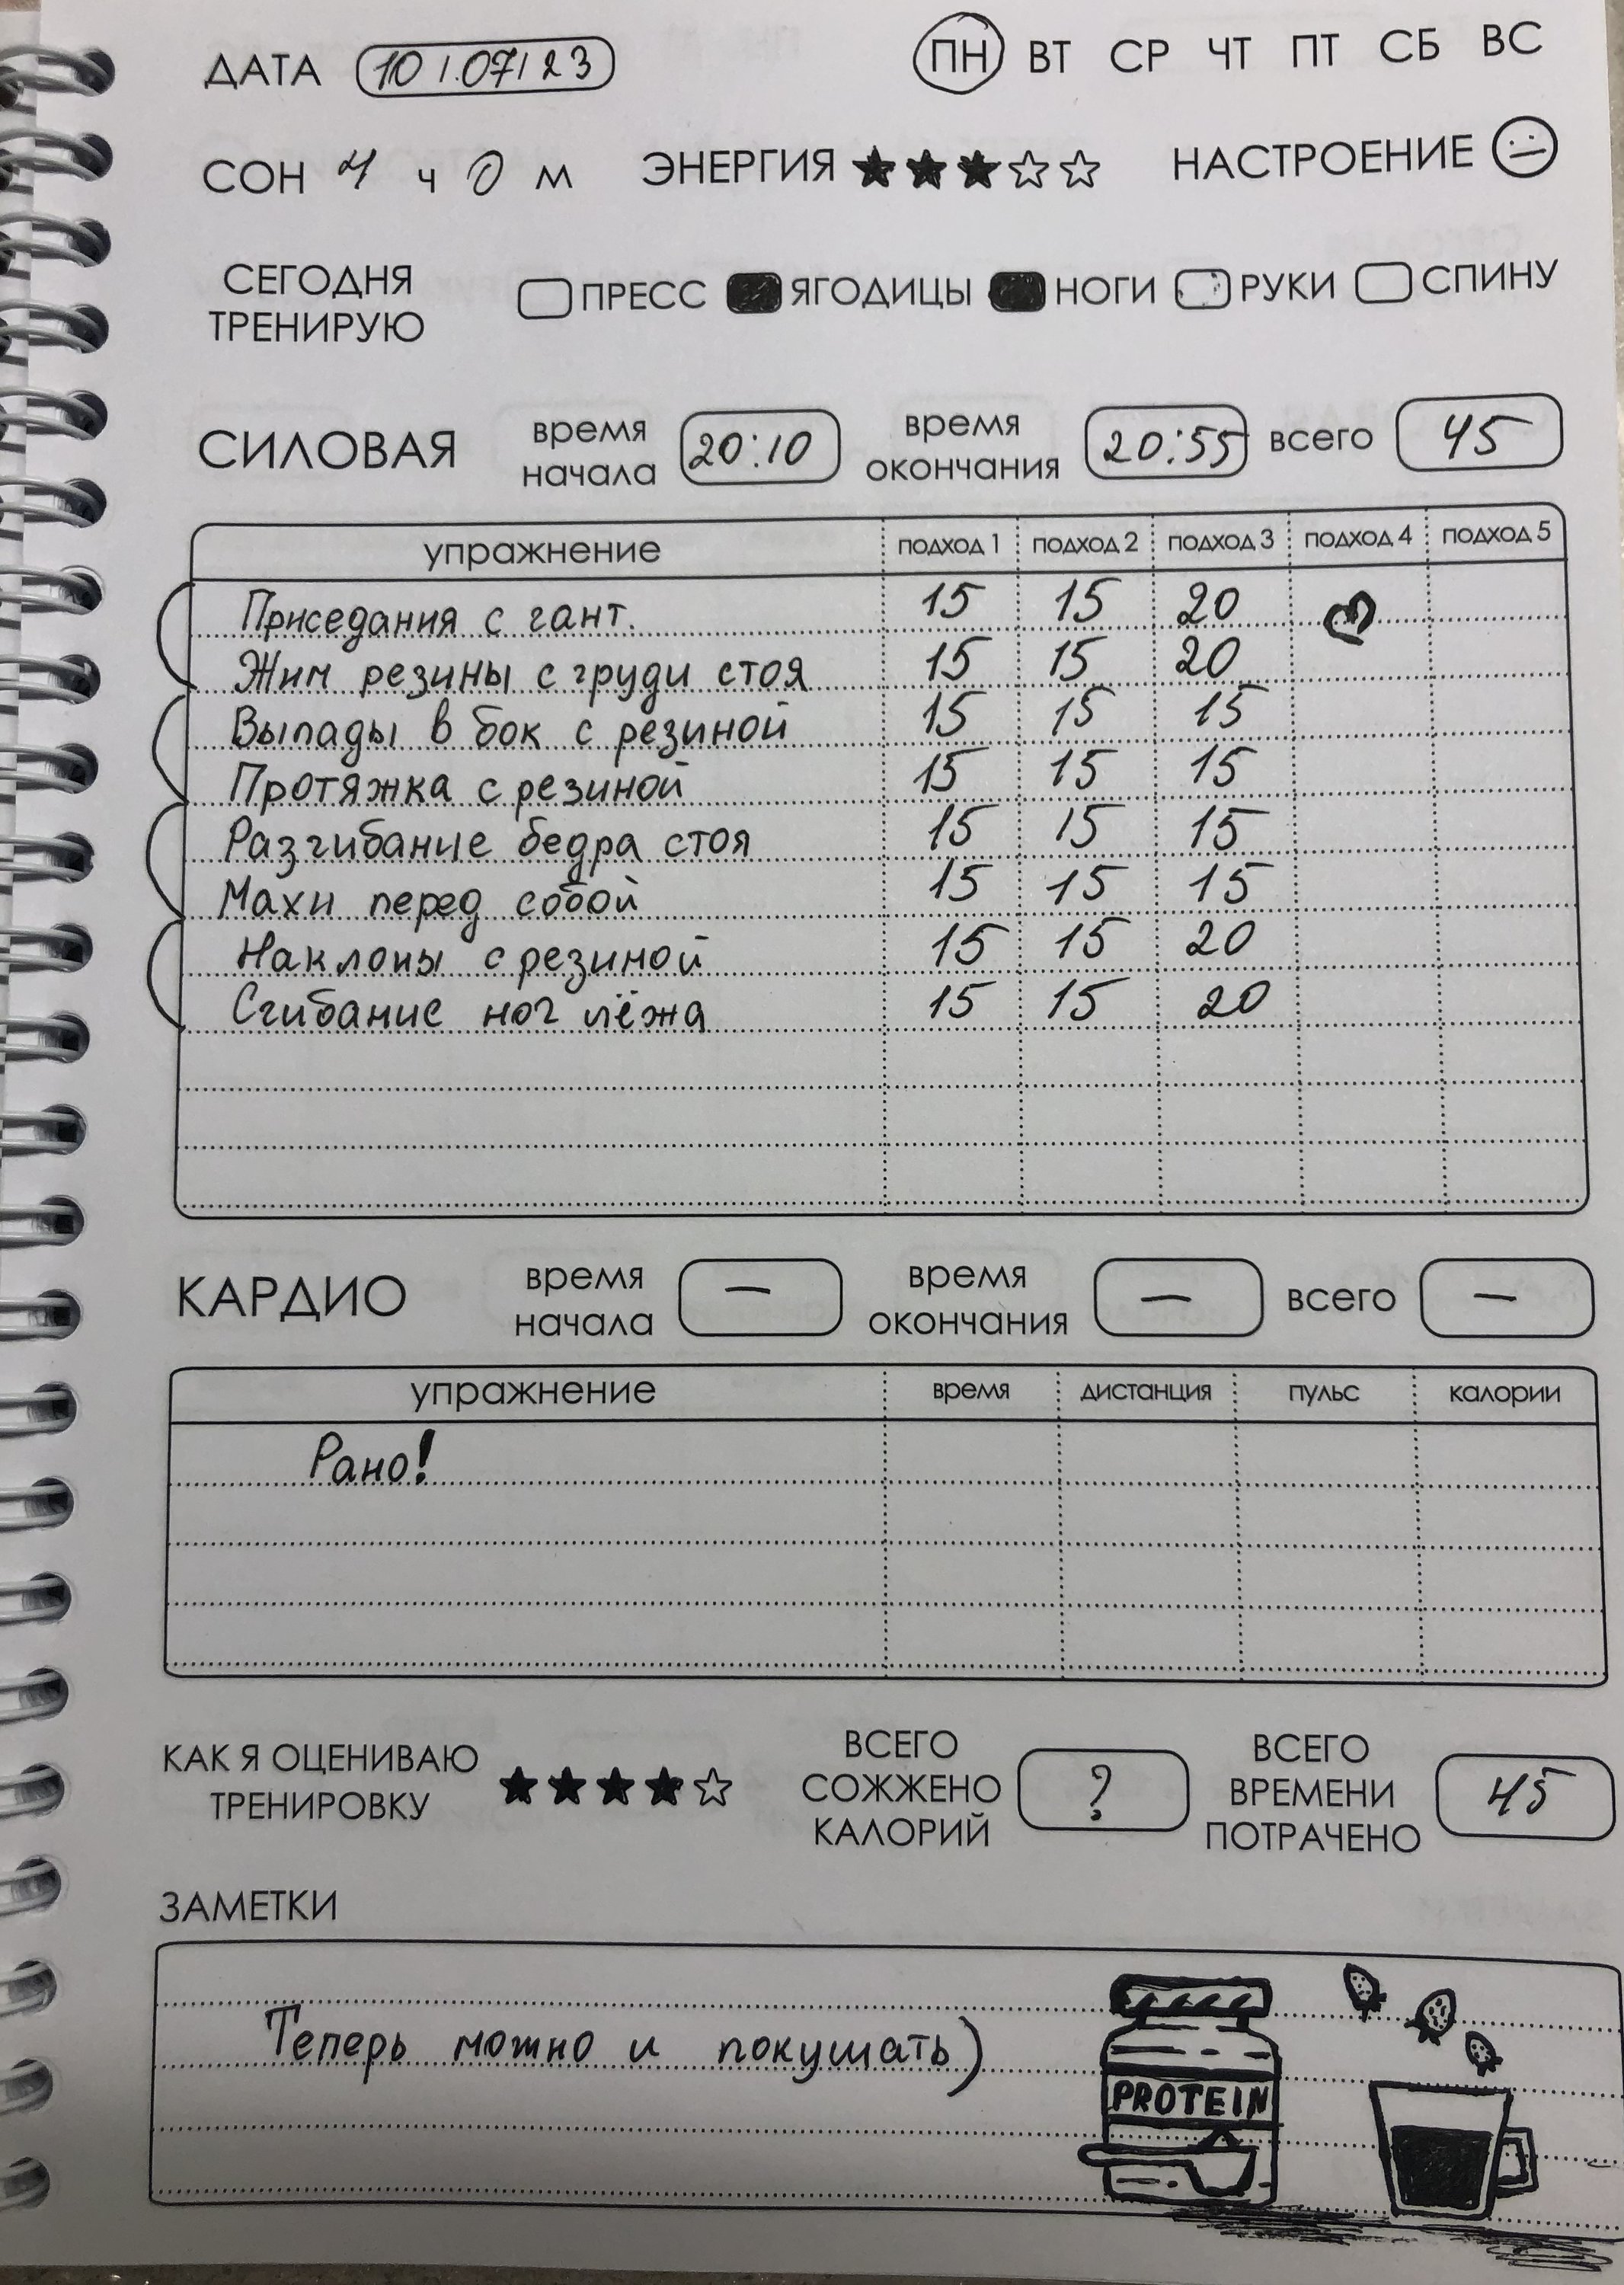 ДАТА 10/.07/23 ПН ВТ СР ЧТ ПТ СБ ВС
СОН ч 0 м ЭНЕРГИЯ НАСТРОЕНИЕ
СЕГОДНЯ ТРЕНИРУЮ ПРЕСС ЯГОДИЦЫ НОГИ РУКИ СПИНУ
СИЛОВАЯ время начала 20:10 время окончания 20:55 всего 45
упражнение подход 1 подход 2 подход 3 подход 4 подход 5
Приседания с гант. 15 15 20
Жим резины с груди стоя 15 15 20
Выпады в бок с резиной 15 15 15
Протяжка с резиной 15 15 15
Разгибание бедра стоя 15 15 15
Махи перед собой 15 15 15
Наклоны с резиной 15 15 20
Сгибание ног лёжа 15 15 20
КАРДИО время начала — время окончания — всего —
упражнение время дистанция пульс калории
Рано!
КАК Я ОЦЕНИВАЮ ТРЕНИРОВКУ ВСЕГО СОЖЖЕНО КАЛОРИЙ ? ВСЕГО ВРЕМЕНИ ПОТРАЧЕНО 45
ЗАМЕТКИ
Теперь можно и покушать)
PROTEIN